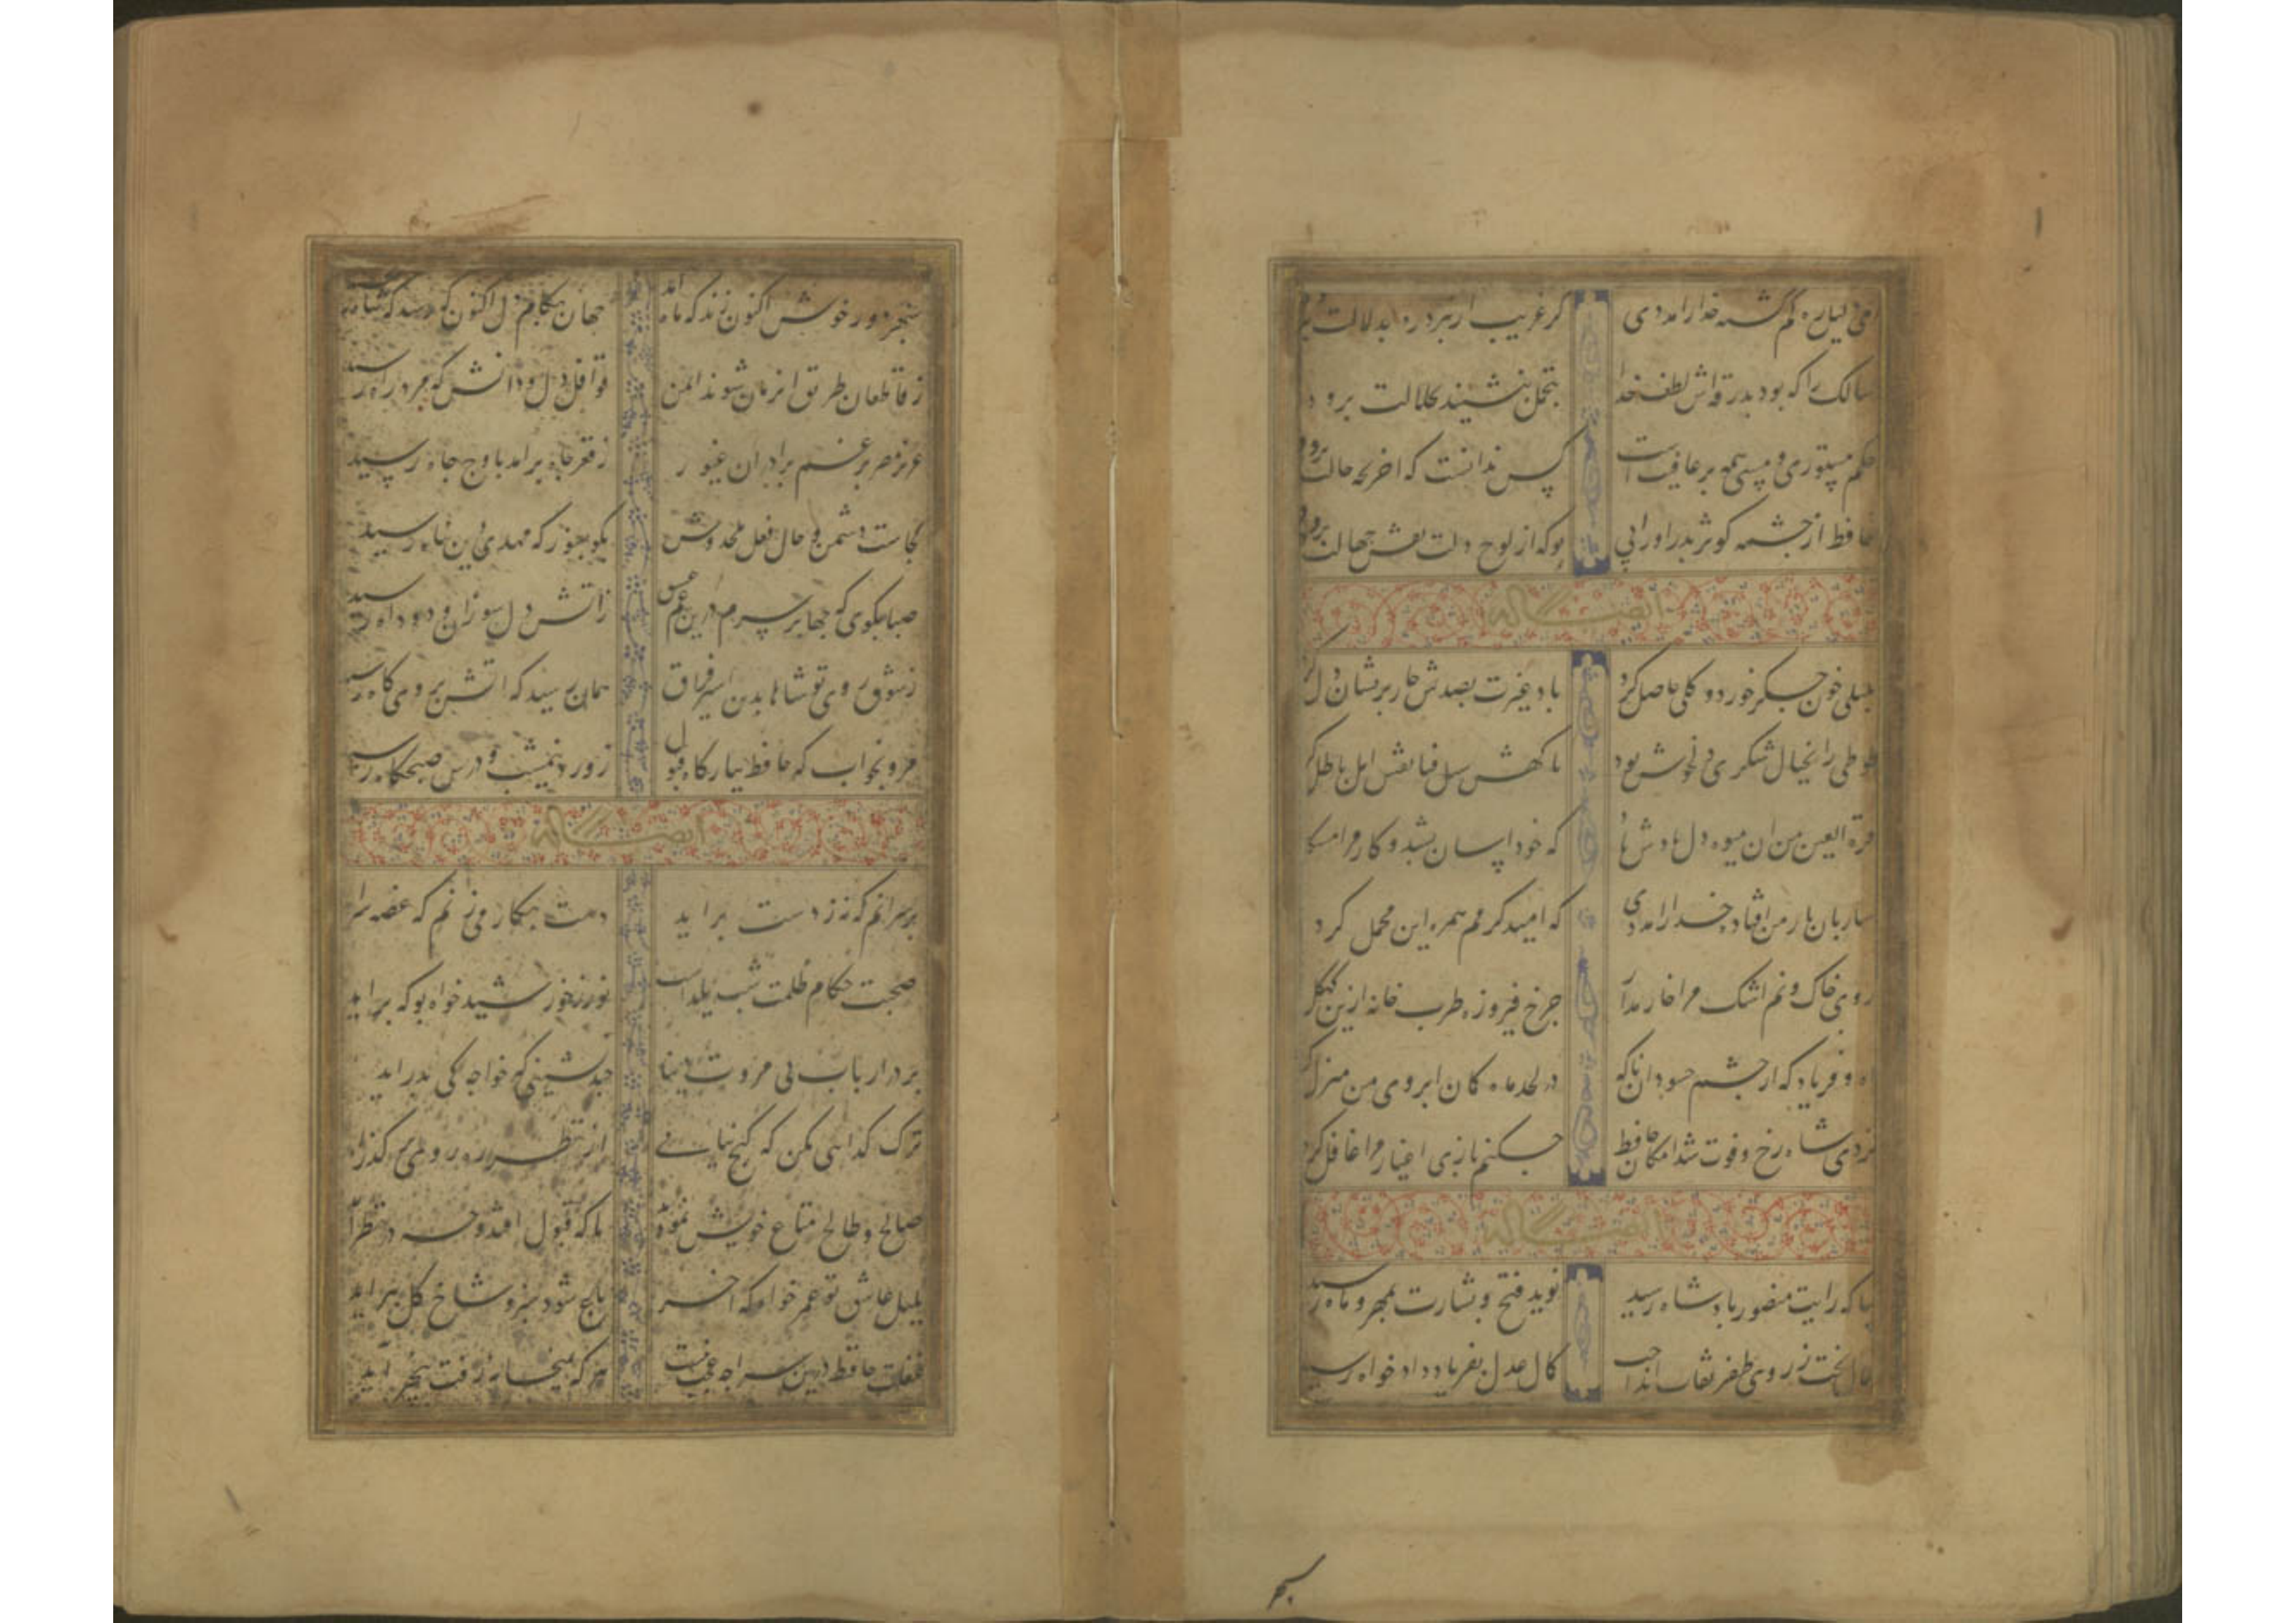 ای دلیل ره گم گشته خدا را مددی
که غریب ار نبرد ره بدلالت برود
سالک را که بود بدرقه اش لطف خدا
بتجمل بنشیند بجلالت برود
حکم مستوری و مستی همه بر عاقبت است
کس ندانست که اخر بچه حالت برود
حافظ از چشمه کوثر بدر اور ابی
بو که از لوح دلت نقش جهالت برود
ایضا له
بلبلی خون جگر خورد و کلی حاصل کرد
باد غیرت بصدش خار پریشان دل کرد
طوطی را بخیال شکری دلخوش بود
ناکهش سیل فنا نقش امل باطل کرد
قره العین من ان میوه دل یادش باد
که خود اسان بشد و کار مرا مشکل
ساربان بار من افتاد خدا را مددی
که امید کرمم همره این محمل کرد
روی خاک و نم اشک مرا خار مدار
چرخ فیروزه طربخانه ازین کهکل کرد
اه و فریاد که از چشم حسودان ناکه
در لحد ماه کمان ابروی من منزل کرد
نزدی شاه رخ و فوت شد امکان حافظ
چکنم بازی اغیار مرا غافل کرد
ایضا له
بیا که رایت منصور پادشاه رسید
نوید فتح و بشارت بمهر و ماه رسید
جمال بخت ز روی ظفر نقاب انداخت
کمال عدل بفریاد دادخواه رسید
سپهر
سپهر دور خوش اکنون زند که ماه امد
جهان بکام دل اکنون رسد که شاه رسید
ز قاطعان طریق این زمان شوند ایمن
قوافل دل و دانش که مرد راه رسید
عزیز مصر برغم برادران غیور
ز قعر چاه برامد باوج جاه رسید
کجاست دشمن دجال فعل ملحد وش
بکو بسوز که مهدی دین پناه رسید
صبا بکوی که چها بر سرم درین غم عشق
ز اتش دل سوزان و دود اه رسید
ز شوق روی تو شاها بدین اسیر فراق
همان رسید که اتش بروی کاه رسید
مرو بخواب که حافظ ببارکاه قبول
ز ورد نیمشب و درس صبحکاه رسید
ایضا له
بر سر انم که کر ز دست براید
دست بکاری زنم که غصه سراید
صحبت حکام ظلمت شب یلداست
نور ز خورشید خواه بو که براید
بر در ارباب بی مروت دنیا
چند نشینی که خواجه کی بدر اید
ترک کدایی مکن که کنج بیابی
از نظر ره روی که در کذر اید
صالح و طالح متاع خویش نمودند
تا که قبول افتد و چه در نظر اید
بلبل عاشق تو عمر خواه که اخر
باغ شود سبز و شاخ کل ببر اید
غفلت حافظ درین سراچه عجب نیست
هر که بمیخانه رفت بیخبر اید